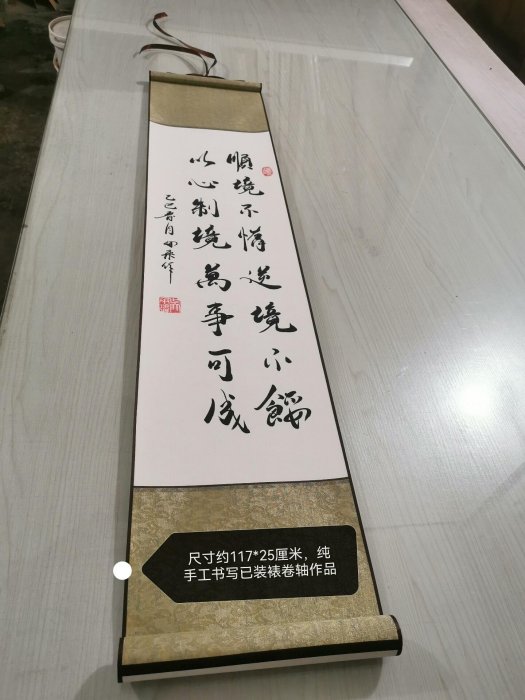 順境不惰逆境不餒
以心制境萬事可成
乙巳春月
尺寸约117*25厘米，纯
手工书写已装裱卷轴作品